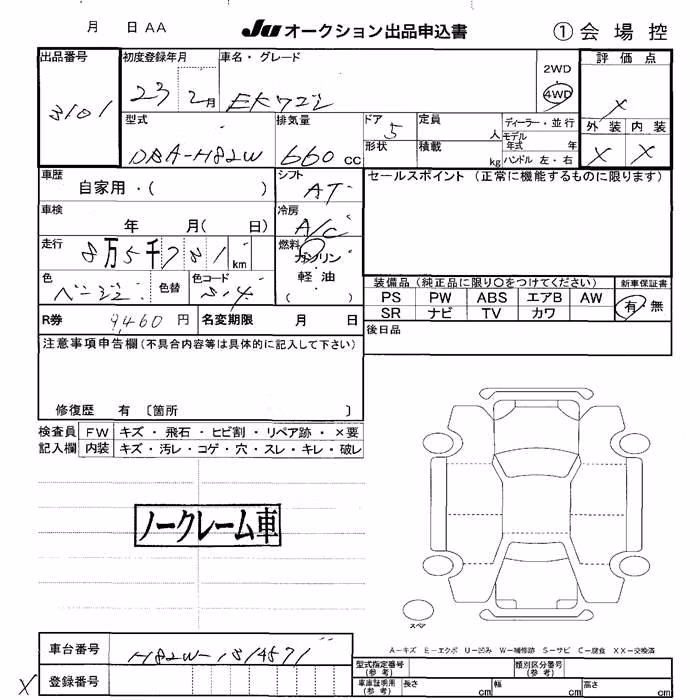 月 日 AA Ju オークション出品申込書 ①会場控
出品番号 初度登録年月 車名・グレード 評価点
3101 23 2月 EKワゴン 2WD 4WD X
型式 排気量 ドア 定員 人 ディーラー・並行 外装 内装
DBA-H82W 660 cc 5 モデル年式 年 X X
形状 積載 kg ハンドル 左・右
車歴 自家用・( ) シフト AT セールスポイント (正常に機能するものに限ります)
車検 年 月( 日) 冷房 A/C
走行 8万5千781km 燃料 ガソリン 軽油 ( )
色 ベージュ 色替 色コード S-4
装備品 (純正品に限り○をつけてください) 新車保証書
PS PW ABS エアB AW 有・無
SR ナビ TV カワ
R券 9,460円 名変期限 月 日 後日品
注意事項申告欄 (不具合内容等は具体的に記入して下さい)
修復歴 有 〔箇所 〕
検査員 FW キズ・飛石・ヒビ割・リペア跡・×要
記入欄 内装 キズ・汚レ・コゲ・穴・スレ・キレ・破レ
ノークレーム車
スペア
A-キズ E-エクボ U-凹み W-補修跡 S-サビ C-腐食 XX-交換済
車台番号 H82W-1514571
型式指定番号 (参考) 類別区分番号 (参考)
X 登録番号 車庫証明用 (参考) 長さ cm 幅 cm 高さ cm